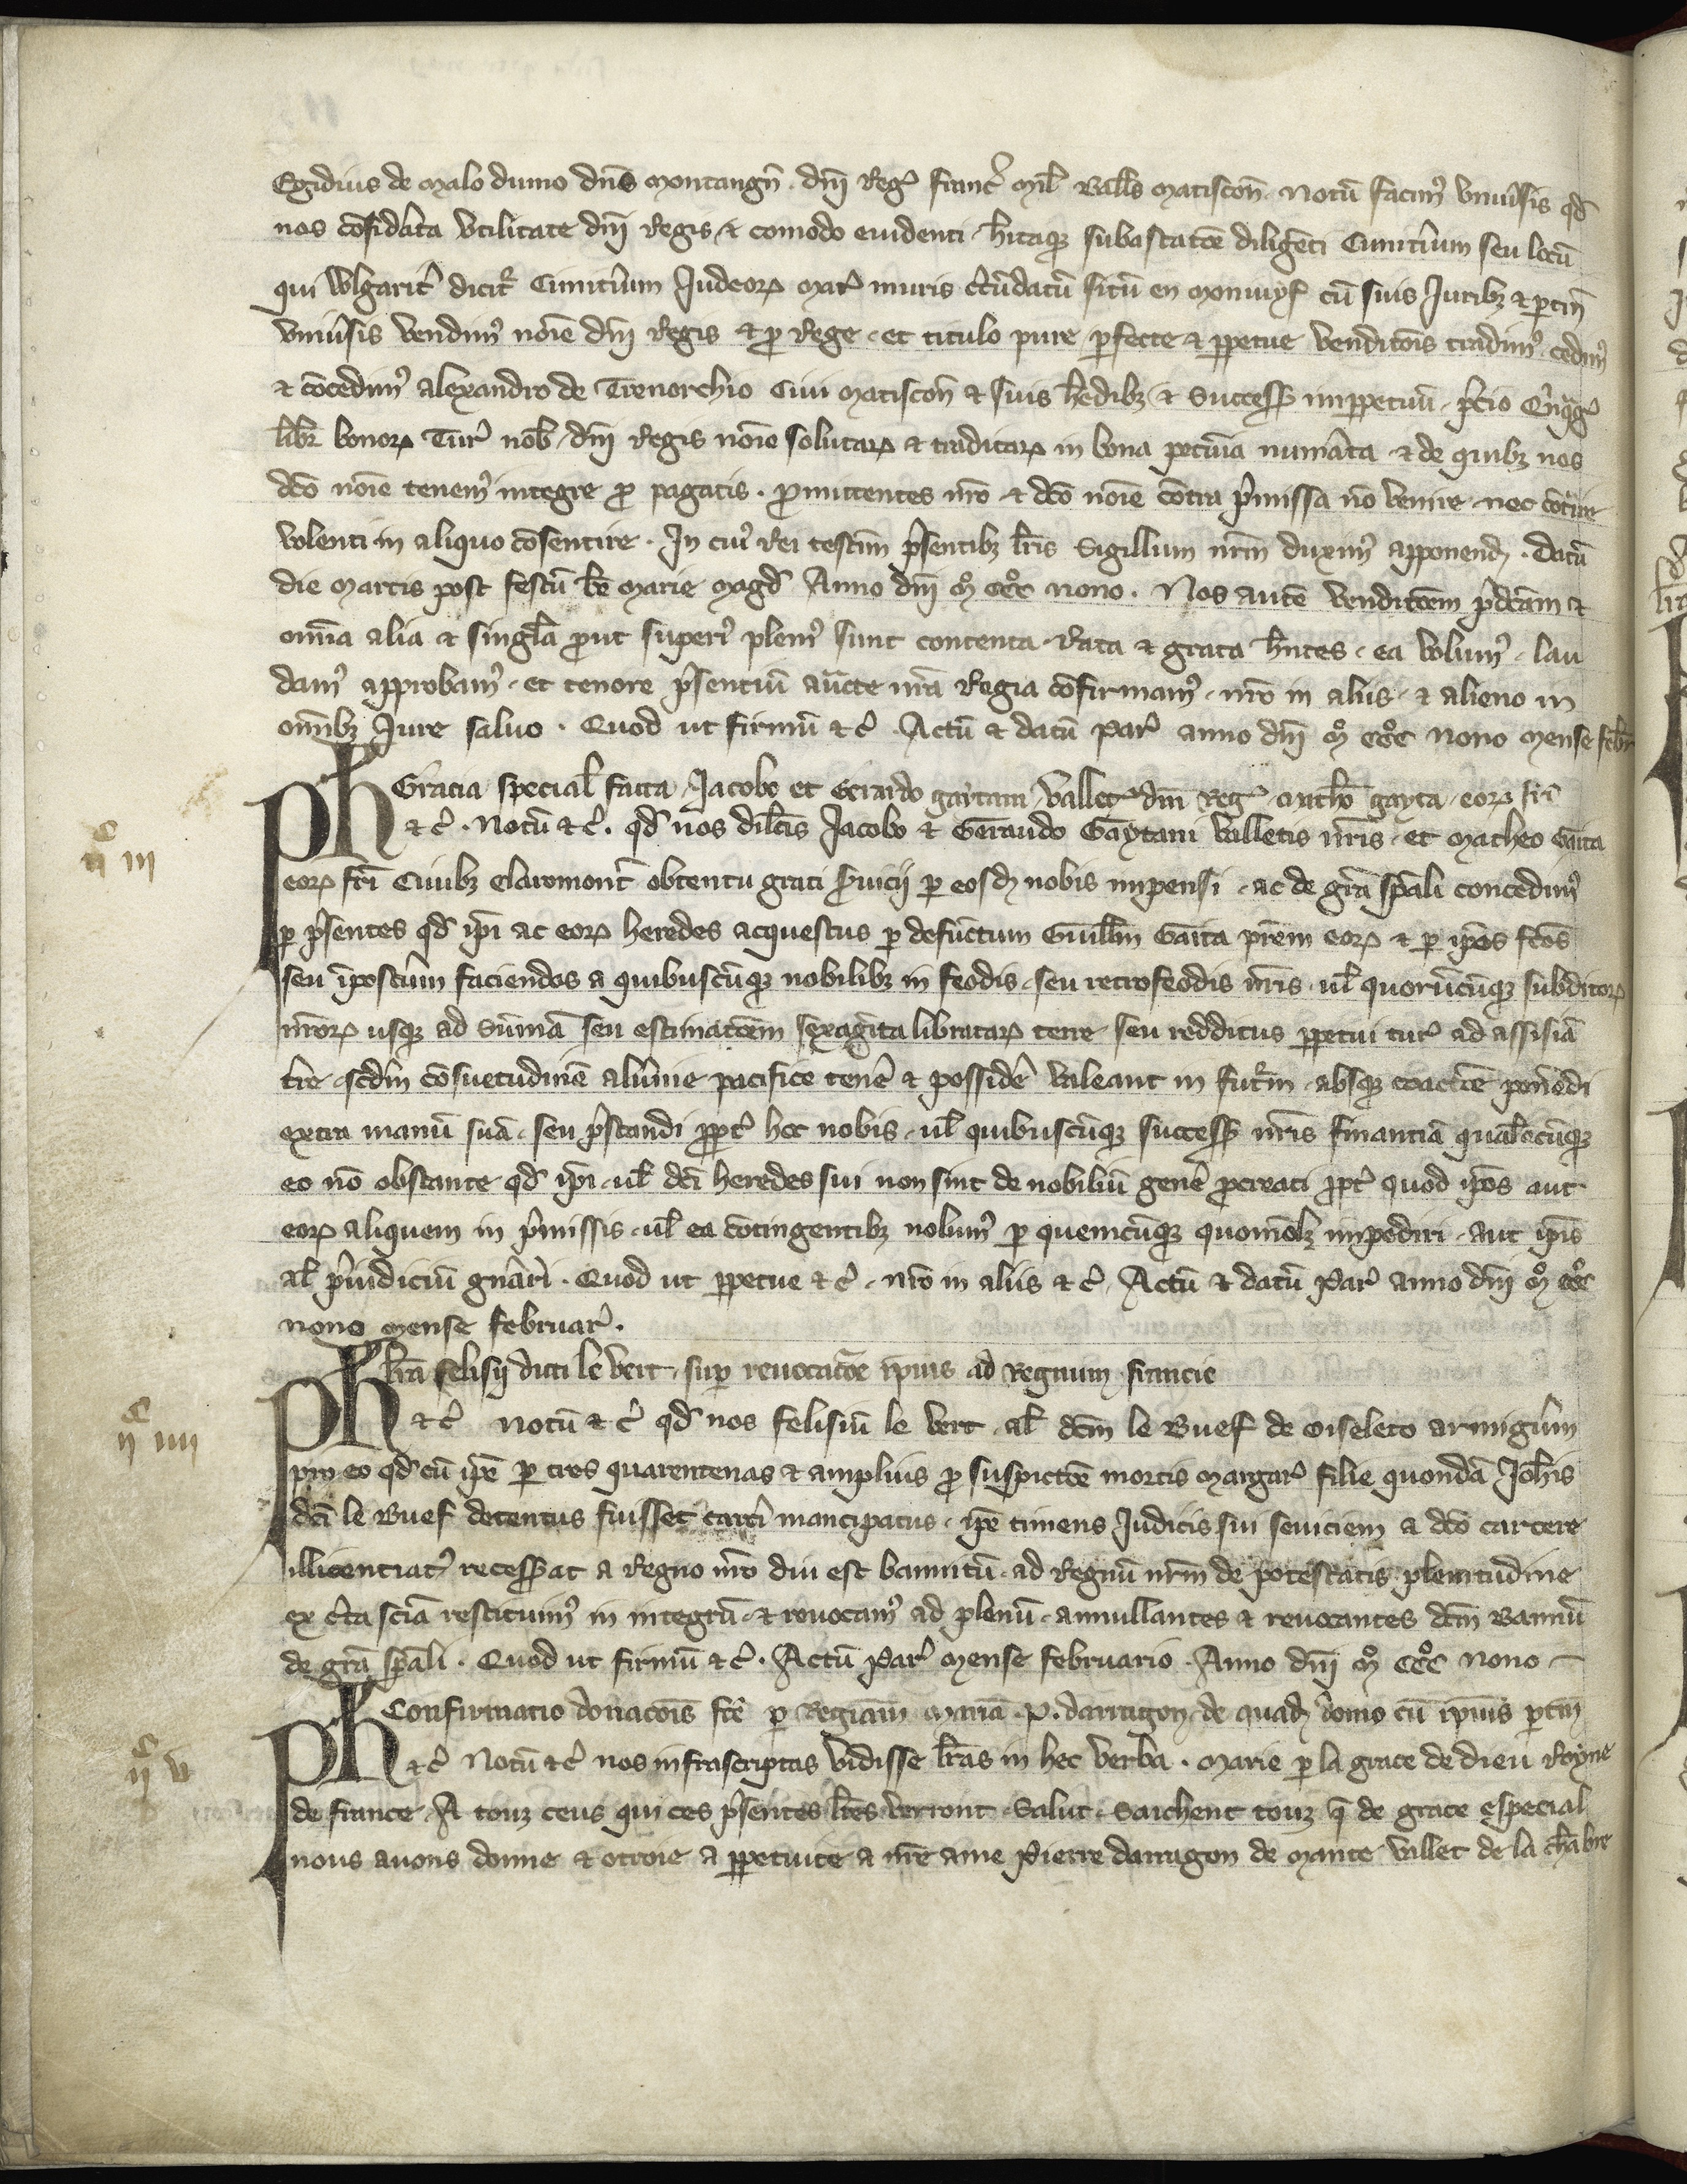 Egidius de Malo dumo dn̄s Montangn̄ . dn̄i Reg̾ franc̾ mil̄ Ball̄s Matiscon̄ . Notū facim᾽ vniuˀsis qd̄
nos cōsidˀata vtilitate dn̄i Regis ⁊ comodo euidenti . h̄itaqȝ subastatōe diligēti Cimitˀium seu locū
qui wlgaritˀ dicit᾽ Cimitˀium Judeoꝝ Mat̾ muris cˀcūdatū sitū en Monuyf cū suis Juribȝ ⁊ ꝑtin̄
vniuˀsis vendim᾽ noīe dn̄i Regis ⁊ ꝓ Rege . et titulo pure ꝑfecte ⁊ ꝑpetue venditōis tradim᾽ . cedim᾽
⁊ cōcedim᾽ Alexandro de Trenorchio Ciui Matiscon̄ ⁊ suis h̄edibȝ ⁊ Success̾ imꝑpetuū . p̄cio
libr̾ bonoꝝ Tur̾ nob̄ . dn̄i Regis noīe solutaꝝ ⁊ traditaꝝ in bona pecunia numˀata . ⁊ de quibȝ nos
dc̄o noīe tenem᾽ integre ꝓ pagatis . ꝓmittentes nr̄o ⁊ dc̄o noīe cōtra pˀmissa nō venire . nec cōtˀire
volenti in aliquo cōsentire . In cui᾽ Rei testim̄ pˀsentibȝ lr̄is Sigillum nr̄m duxim᾽ apponend̾ . Datū
die Martis post festū be Marie Magd̄ Anno dn̄i m̊ ccc̊ nono . Nos autē venditōem p̄dc̄am ⁊
om̄ia alia ⁊ singl̄a ꝓut superi᾽ plem᾽ sunt contenta . Rata ⁊ grata h̄ntes . ea volum᾽ . lau
dam᾽ approbam᾽ . et tenore pˀsentiū auc̄te nr̄a Regia cōfirmam᾽ . nr̄o in aliis . ⁊ alieno in
om̄ibȝ Jure saluo . Quod ut firmū ⁊ c̾ . Actū ⁊ datū Par̾ anno dn̄i m̊ ccc̊ nono mense febr̾
Gracia special̄ facta Jacobo et Gerardo gaytani vallet̾ dn̄i Reg̾ . Math̄o gayta . eoꝝ fr̄i
c̊ ii iii
Ph ⁊ c̾ . Notū ⁊ c̾ . qd̄ nos dil̄cis Jacobo ⁊ Gerando Gaytani valletis nr̄is . et Matheo Gaita
eoꝝ fr̄i Ciuibȝ Claromont̾ obtentu grati sˀuicij ꝑ eosd̾ nobis impensi . ac de gr̄a sp̄ali concedim᾽
ꝑ pˀsentes qd̄ ip̄i ac eoꝝ heredes acquestus ꝑ defunctum Guill̄m Gaita pr̄em eoꝝ ⁊ ꝑ ip̄os fc̄os
seu īpostˀum faciendos a quibuscūqȝ nobilibȝ in feodis . seu retrofeodis nr̄is . ul̄ quorūcūqȝ subditoꝝ
nr̄oꝝ usqȝ ad Sūmā seu estimatōem sexagīta librataꝝ terre seu redditus ꝑpetui tur̾ ad assisiā
tr̄e . scd̄m cōsuetudinē aluˀnie pacifice tenē ⁊ possidē valeant in fut᾽m . absqȝ coactōe ponēdi
extra manū suā . seu pˀstandi ꝓpt̾ hoc nobis . ul̄ quibuscūqȝ success̾ nr̄is financiā qual̄ecūqȝ
eo nō obstante qd̄ ip̄i . ul̄ dc̄i heredes sui non sint de nobiliū genē ꝓcreati ꝓpt̾ quod ip̄os aut
eoꝝ aliquem in pˀmissis . ul̄ ea cōtingentibȝ nolum᾽ ꝑ quemcūqȝ quomōlȝ impediri . aut ip̄is
al̄ pˀiudiciū gnˀari . Quod ut ꝑpetue ⁊ c̾ . nr̄o in aliis ⁊ c̾ Actū ⁊ datū Par̾ anno dn̄i m̊ ccc̊
nono mense februar̾ .
lr̄a felisij dicti le vert . suꝑ reuocatōe ip̄ius ad Regnum francie
c̊ ii iiii
Ph ⁊ c̾ Notū ⁊ c̾ qd̄ nos felisiū le vert . al̄ dc̄m le Buef de Oiseleto armigˀum
pro eo qd̄ cū ip̄e ꝑ tres quarentenas ⁊ amplius ꝓ suspictōe mortis Margar̾ filie quondā Joh̄is
dc̄i le Buef detentus fuisset carcˀi mancipatus . ip̄e timens Judicis sui seuiciem a dc̄o carcere
illicentiat᾽ recess̾at a Regno nr̄o diu est bannitū . ad Regnū nr̄m de potestatis plenitudine
ex cˀta sciā restituim᾽ in integrū . ⁊ reuocam᾽ ad plenū . annullantes ⁊ reuocantes dc̄m Bannū
de gr̄a sp̄ali . Quod ut firmū ⁊ c̾ . Actū Par̾ mense februario . Anno dn̄i m̊ ccc̊ nono
Confirmatio donacōis fc̄e ꝑ Reginam Mariā . P . darragon de quad̾ domo cū ip̄ius ꝑtin̄
c̊ ii v
Ph ⁊ c̾ Notū ⁊ c̾ nos infrascriptas vidisse lr̄as in hec verba . Marie ꝑ la grace de dieu Royne
de france . A touz ceus qui ces pˀsentes lr̄es verront . Salut . Saichent touz q̄ de grace especial
nous auons donne ⁊ otroie a ꝑpetuite a nr̄e ame Pierre darragon de Mante vallet de la chābre